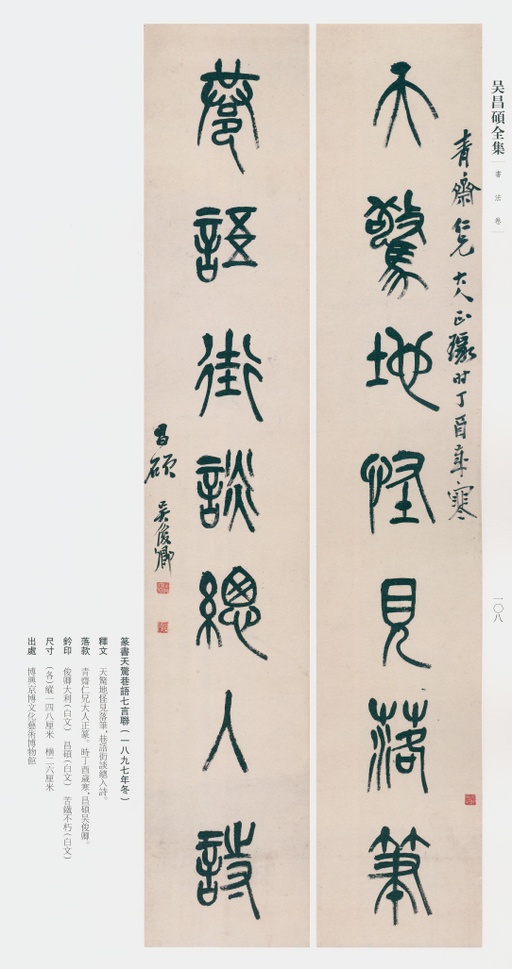 吴昌碩全集
書法卷
一〇八
青齋仁兄大人正篆時丁酉歲寒
天驚地怪見落筆
巷語街談總入詩
昌碩吴俊卿
篆書天驚巷語七言聯（一八九七年冬）
釋文 天驚地怪見落筆，巷語街談總入詩。
落款 青齋仁兄大人正篆。時丁酉歲寒，昌碩吴俊卿。
鈐印 俊卿大利（白文） 昌碩（白文） 苦鐵不朽（白文）
尺寸 （各）縱一四八厘米 橫二六厘米
出處 博興京博文化藝術博物館